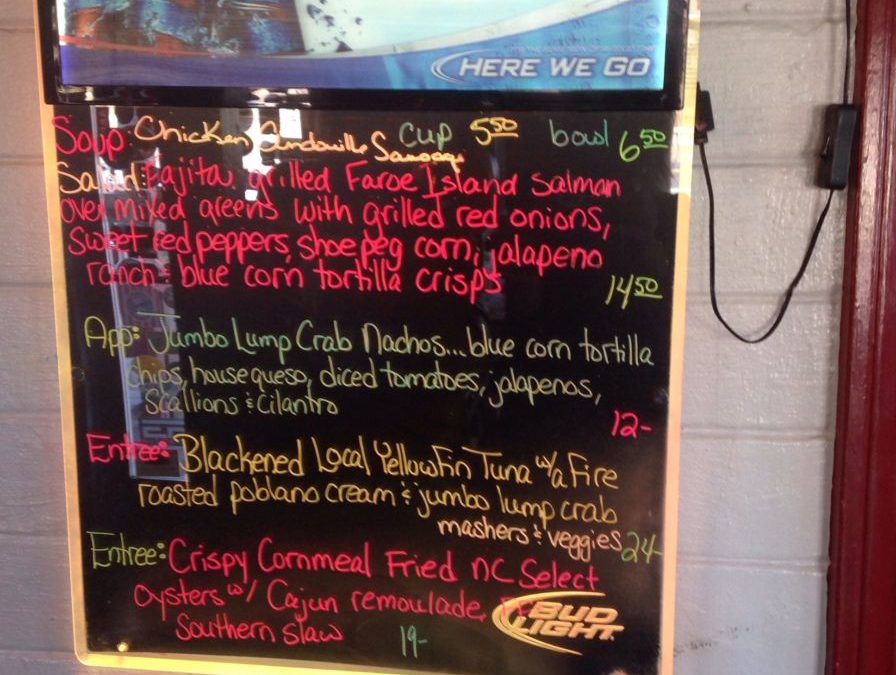 HERE WE GO
Soup: Chicken Andouille Sausage cup 5.50 bowl 6.50
Salad: Fajita grilled Faroe Island Salman
over mixed greens with grilled red onions,
sweet red peppers, shoepeg corn, jalapeno
ranch & blue corn tortilla crisps
14.50
App: Jumbo Lump Crab Nachos...blue corn tortilla
chips, house queso, diced tomatoes, jalapenos,
scallions & cilantro
12-
Entree: Blackened Local Yellowfin Tuna w/a Fire
roasted poblano cream & jumbo lump crab
mashers & veggies 24-
Entree: Crispy Cornmeal Fried NC Select
oysters w/ Cajun remoulade,
Southern slaw 19-
BUD LIGHT